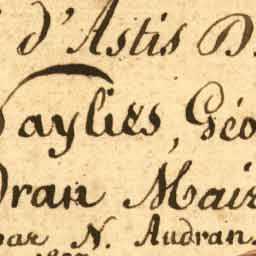 d'Astis D
Taylies, Géo
dran Mair
par N. Audran.